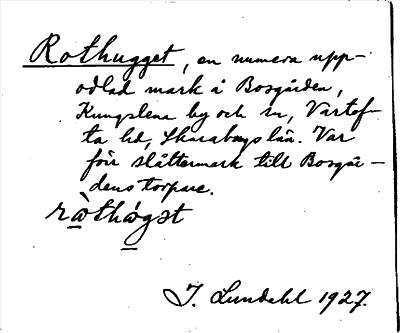 Rothugget, en numera upp-
odlad mark å Bosgården,
Kungslena by och sn, Vartof-
ta hd, Skaraborgs län. Var
förr slåttermark till Bosgår-
dens torpare.
I. Lundahl 1927.